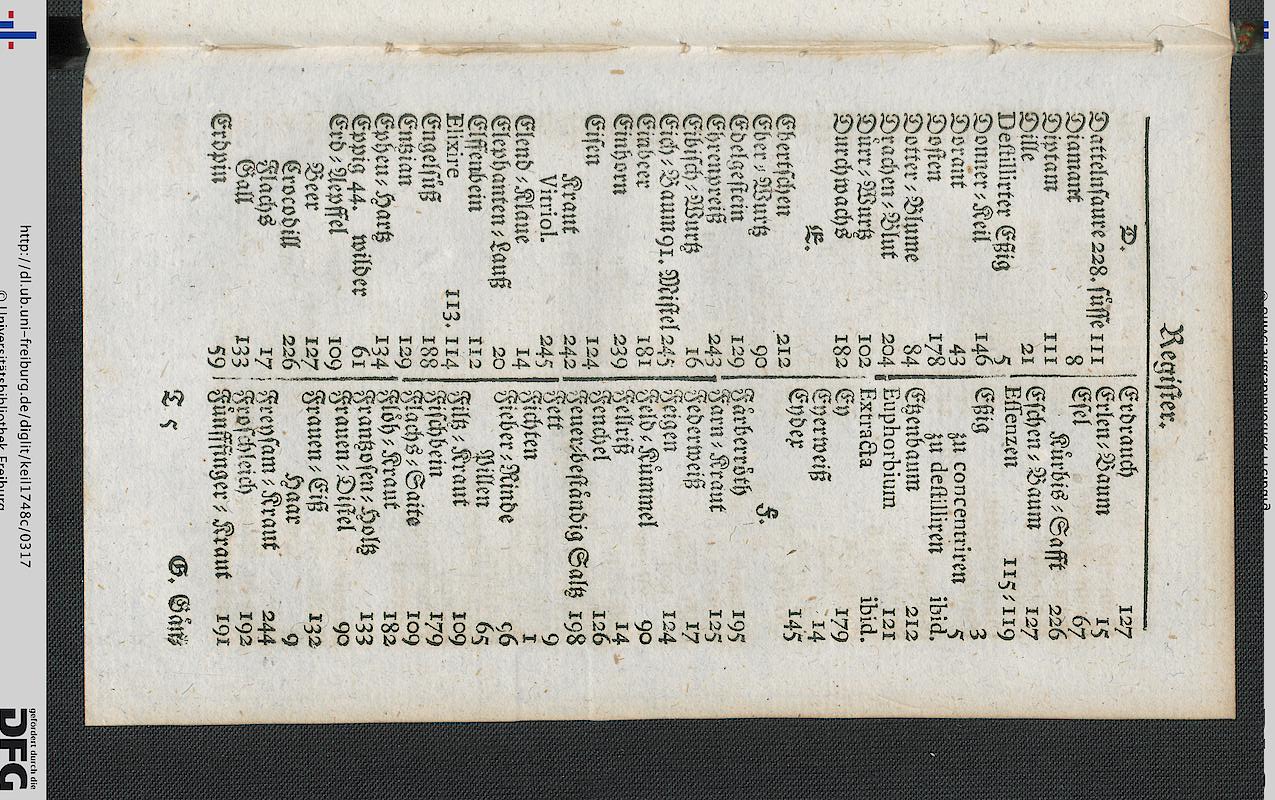 Register.
D.
Dattelnsaure 228. süsse 111
Diamant 8
Diptam 111
Dille 21
Destillirter Eßig 5
Donner⸗Keil 146
Dorant 43
Dosten 178
Dotter⸗Blume 84
Drachen⸗Blut 204
Dürr⸗Wurtz 102
Durchwachs 182
E.
Ebertschen 212
Eber⸗Wurtz 90
Edelgestein 129
Ehrenpreiß 243
Eibisch⸗Wurtz 16
Eich⸗Baum 91. Mistel 245
Einbeer 181
Einhorn 239
Eisen 124
Kraut 242
Vitriol. 245
Elend⸗Klaue 14
Elephanten⸗Lauß 20
Elffenbein 112
Elixire 113. 114
Engelsüß 188
Entzian 129
Epheu⸗Hartz 134
Eppig 44. wilder 61
Erd⸗Aepffel 109
Beer 127
Crocodill 226
Flachs 17
Gall 133
Erdpin 59
Erdrauch 127
Erlen⸗Baum 15
Esel 67
Kürbis⸗Safft 226
Eschen⸗Baum 127
Essenzen 115⸗119
Eßig 3
zu concentriren 5
zu destilliren ibid.
Etzenbaum 212
Euphorbium 121
Extracta ibid.
Ey 179
Eyerweiß 14
Eyder 145
F.
Färberröth 195
Farn⸗Kraut 125
Federweiß 17
Feigen 124
Feld⸗Kümmel 90
Fellriß 14
Fenchel 126
Feuer⸗beständig Saltz 198
Fett 9
Fichten 1
Fieber⸗Rinde 96
Pillen 65
Filtz⸗Kraut 109
Fischbein 179
Flachs⸗Saite 109
Flöh⸗Kraut 182
Frantzosen⸗Holtz 133
Frauen⸗Distel 90
Frauen⸗Eiß 132
Haar 9
Freysam⸗Kraut 244
Froschleich 192
Fünffinger⸗Kraut 191
T 5
G. Gäns
http://dl.ub.uni-freiburg.de/diglit/keil1748c/0317
© Universitätsbibliothek Freiburg
gefördert durch die
DFG